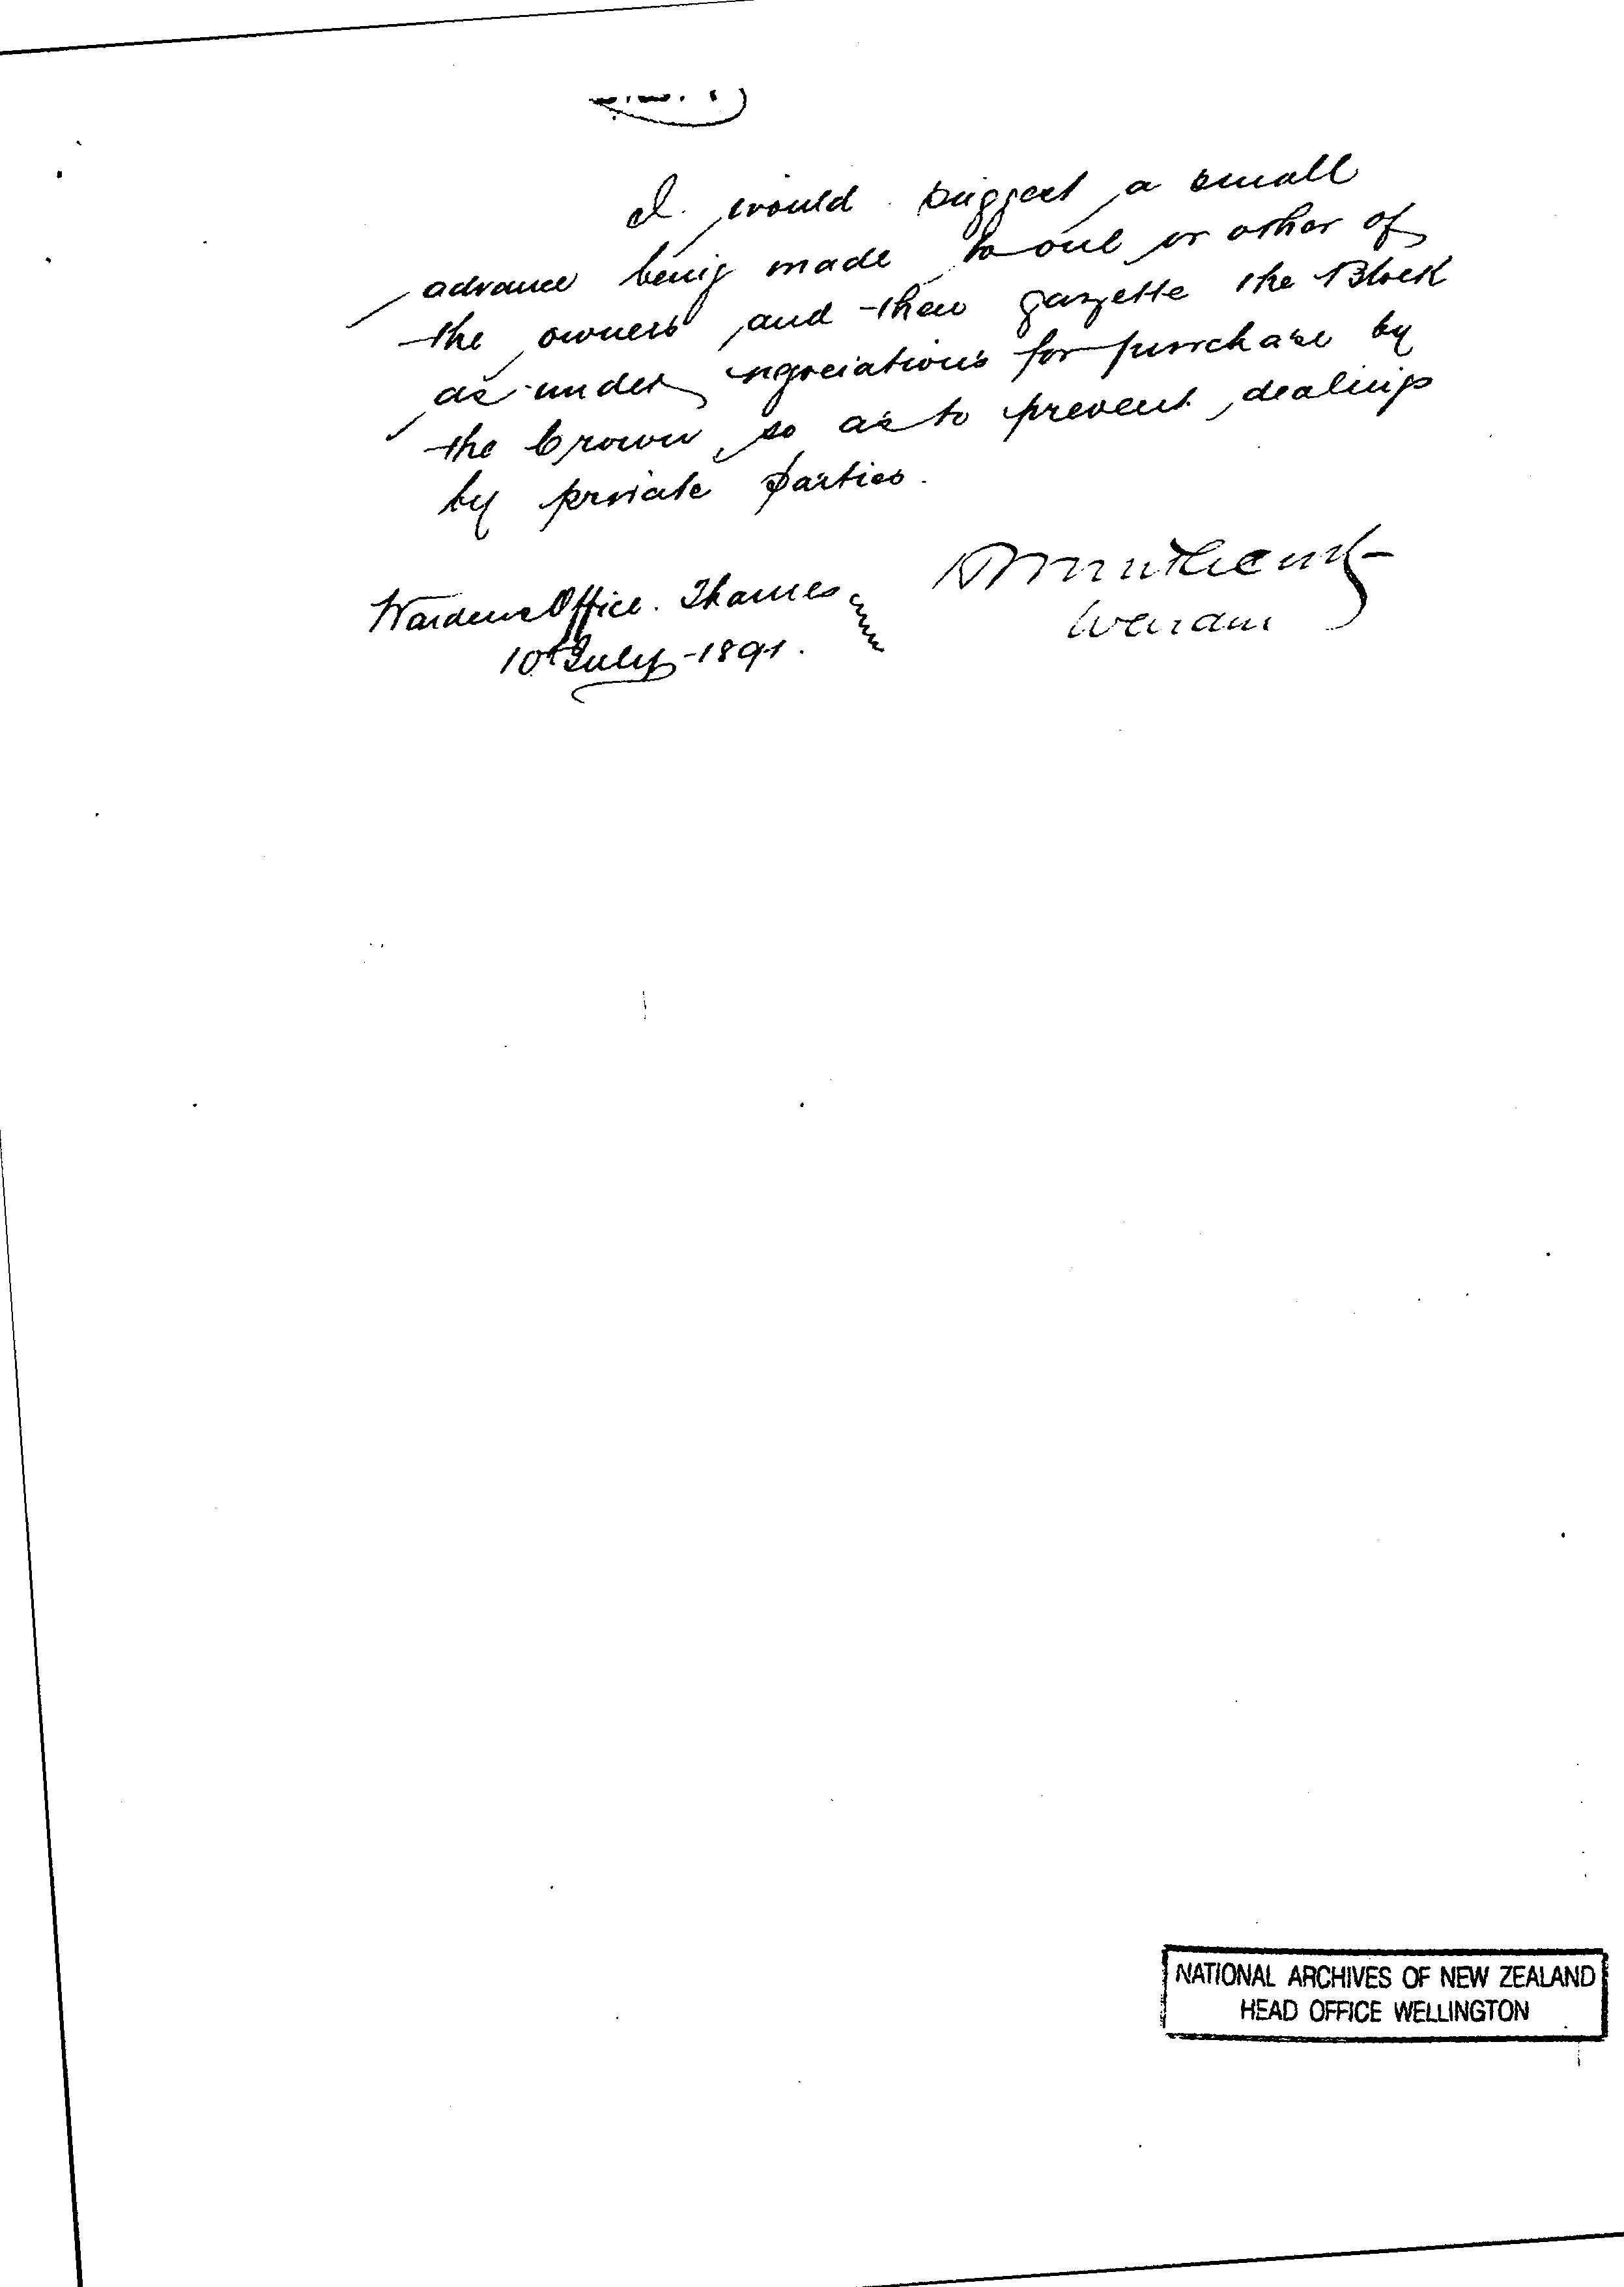 I would suggest a small
advance being made to one or other of
the owners and then gazette the Block
as under negociations for purchase by
the Crown, so as to prevent dealings
by private parties.
Wardens Office. Thames
10th July - 1891.
Warden
NATIONAL ARCHIVES OF NEW ZEALAND
HEAD OFFICE WELLINGTON